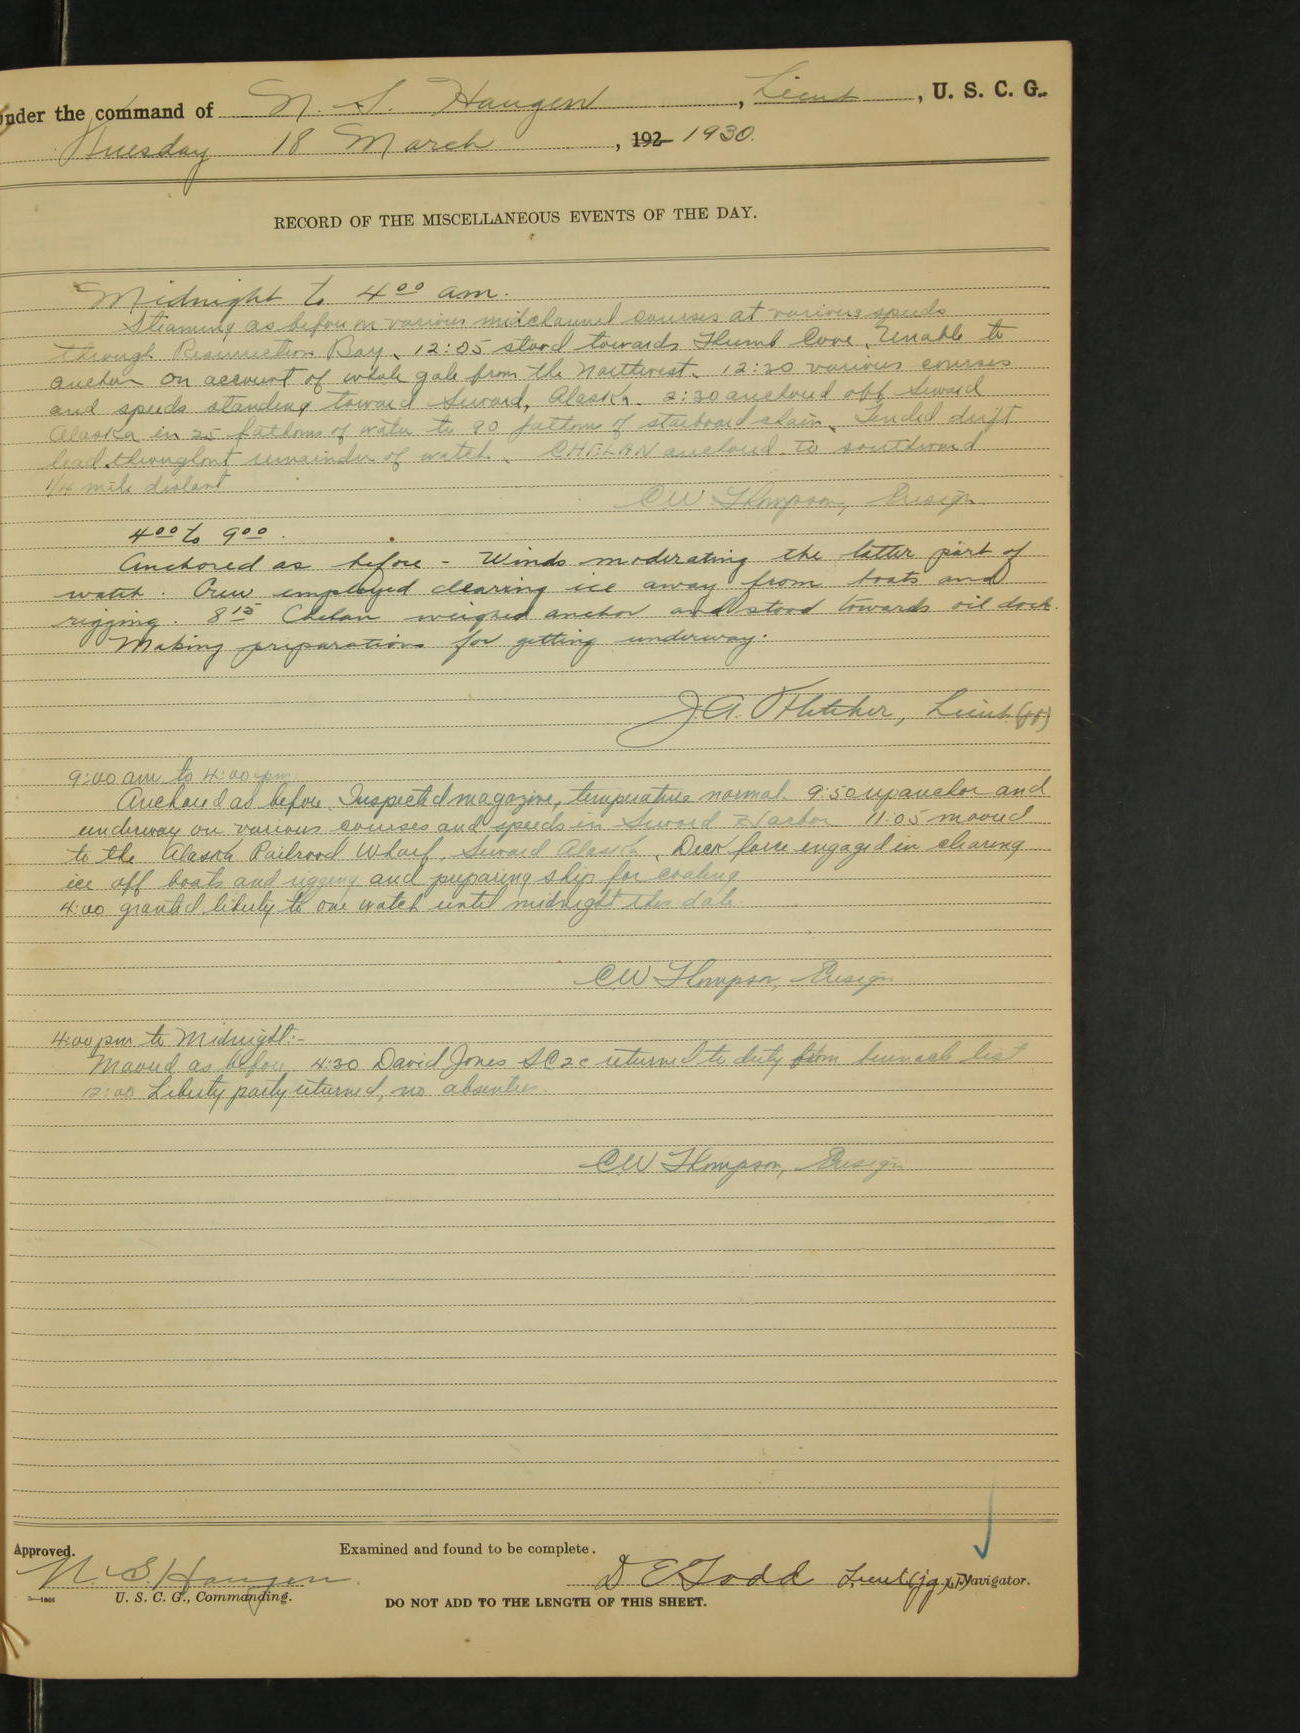 under the command of N. S. Haugen, Lieut, U. S. C. G.
Tuesday 18 March, 192 1930.
RECORD OF THE MISCELLANEOUS EVENTS OF THE DAY.
Midnight to 4⁰⁰ am.
Steaming as before on various midchannel courses at various speeds
through Resurrection Bay. 12:05 stood towards Thumb Cove. Unable to
anchor on account of whole gale from the Northwest. 12:20 various courses
and speeds standing toward Seward, Alaska. 2:30 anchored off Seward
Alaska in 25 fathoms of water to 90 fathoms of starboard chain. Tended drift
lead throughout remainder of watch. CHELAN anchored to southward
1/4 mile distant
CW Thompson, Ensign
4⁰⁰ to 9⁰⁰.
Anchored as before - Winds moderating the latter part of
watch. Crew employed clearing ice away from boats and
rigging. 8¹⁵ Chelan weighed anchor and stood towards oil dock.
Making preparations for getting underway.
J.A. Fletcher, Lieut (jg)
9:00 am to 4:00 pm
Anchored as before. Inspected magazine, temperature normal. 9:50 up anchor and
underway on various courses and speeds in Seward Harbor 11:05 moored
to the Alaska Railroad Wharf, Seward Alaska. Deck force engaged in clearing
ice off boats and rigging and preparing ship for coaling
4:00 granted liberty to one watch until midnight this date.
CW Thompson, Ensign
4:00 pm to Midnight:-
Moored as before, 4:30 David Jones SC2c returned to duty from binnacle list
12:00 Liberty party returned, no absentees.
CW Thompson, Ensign
Approved.
Examined and found to be complete.
N. S. Haugen
D E Todd Lieut (jg), Navigator.
U. S. C. G., Commanding.
DO NOT ADD TO THE LENGTH OF THIS SHEET.